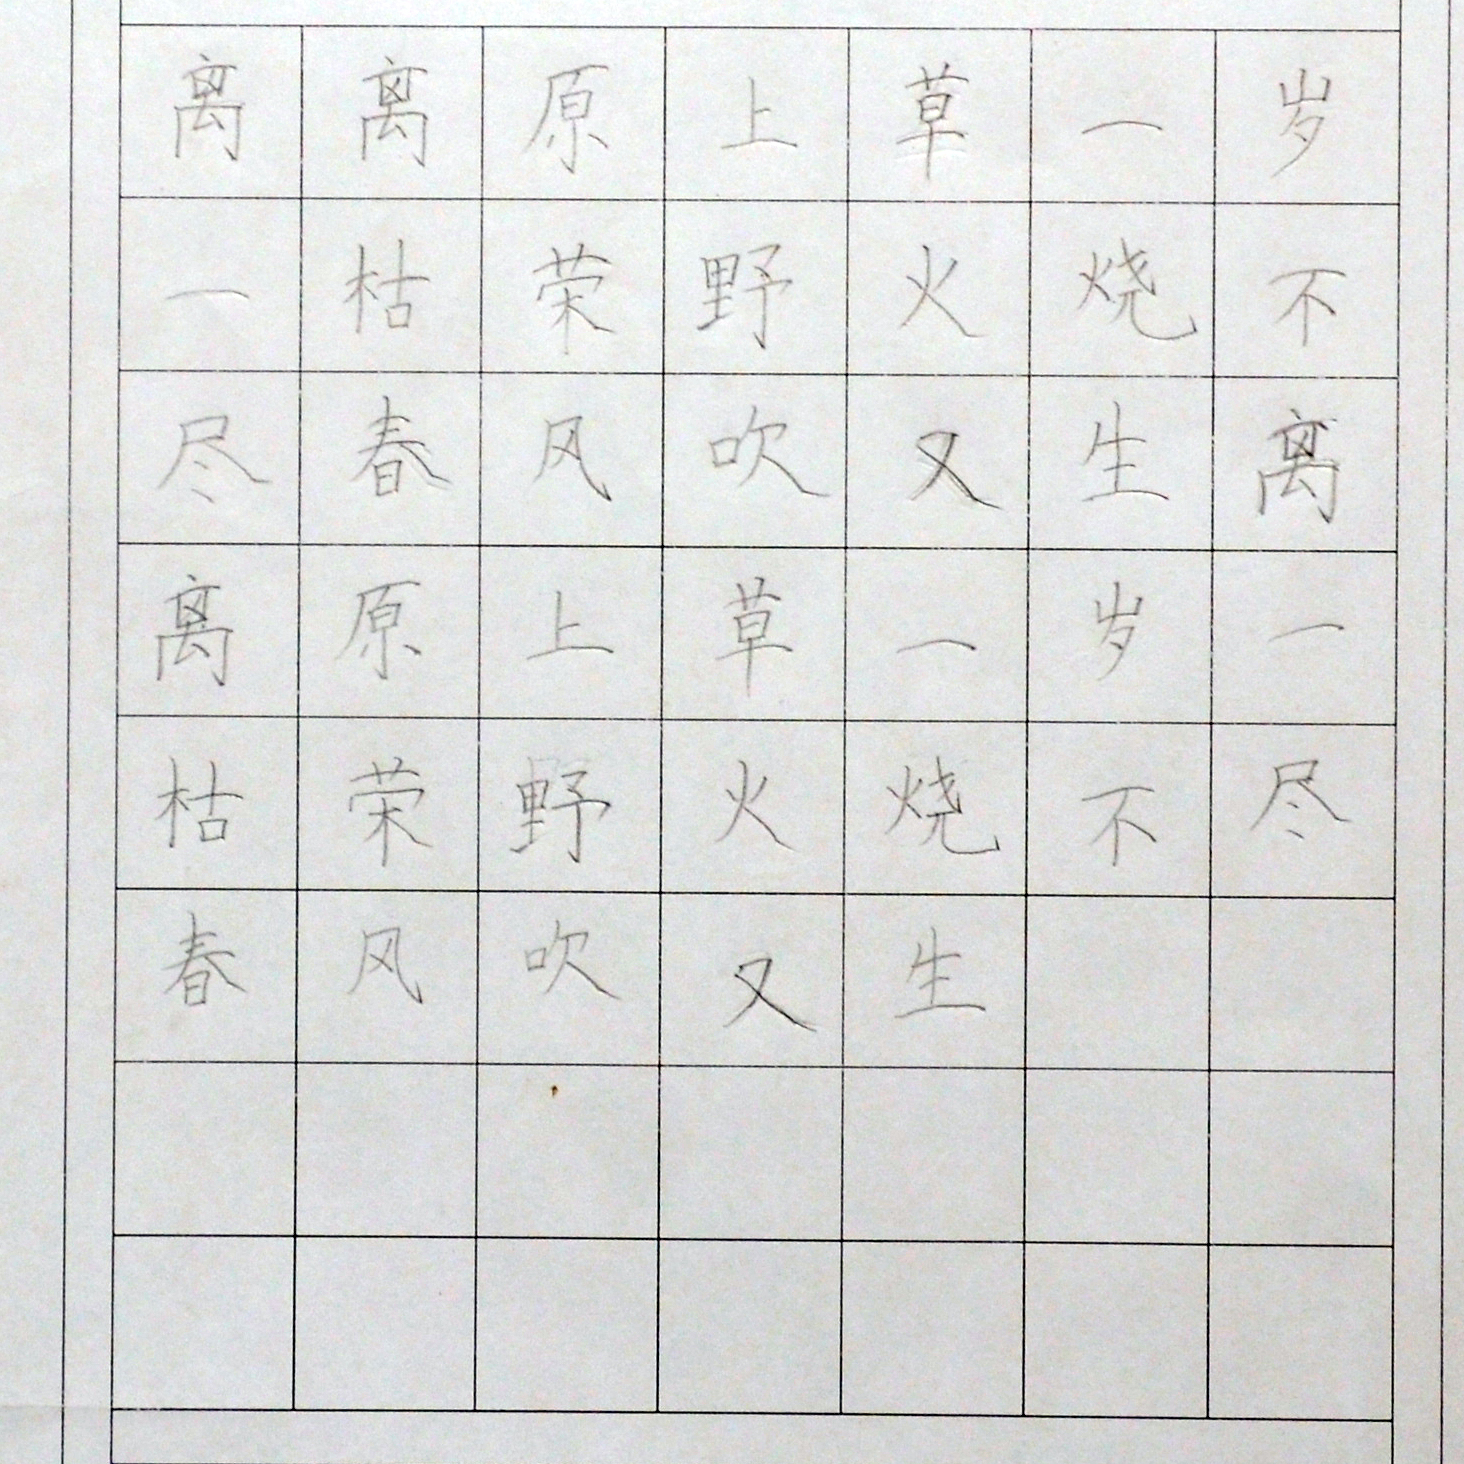 离离原上草一岁
一枯荣野火烧不
尽春风吹又生离
离原上草一岁一
枯荣野火烧不尽
春风吹又生